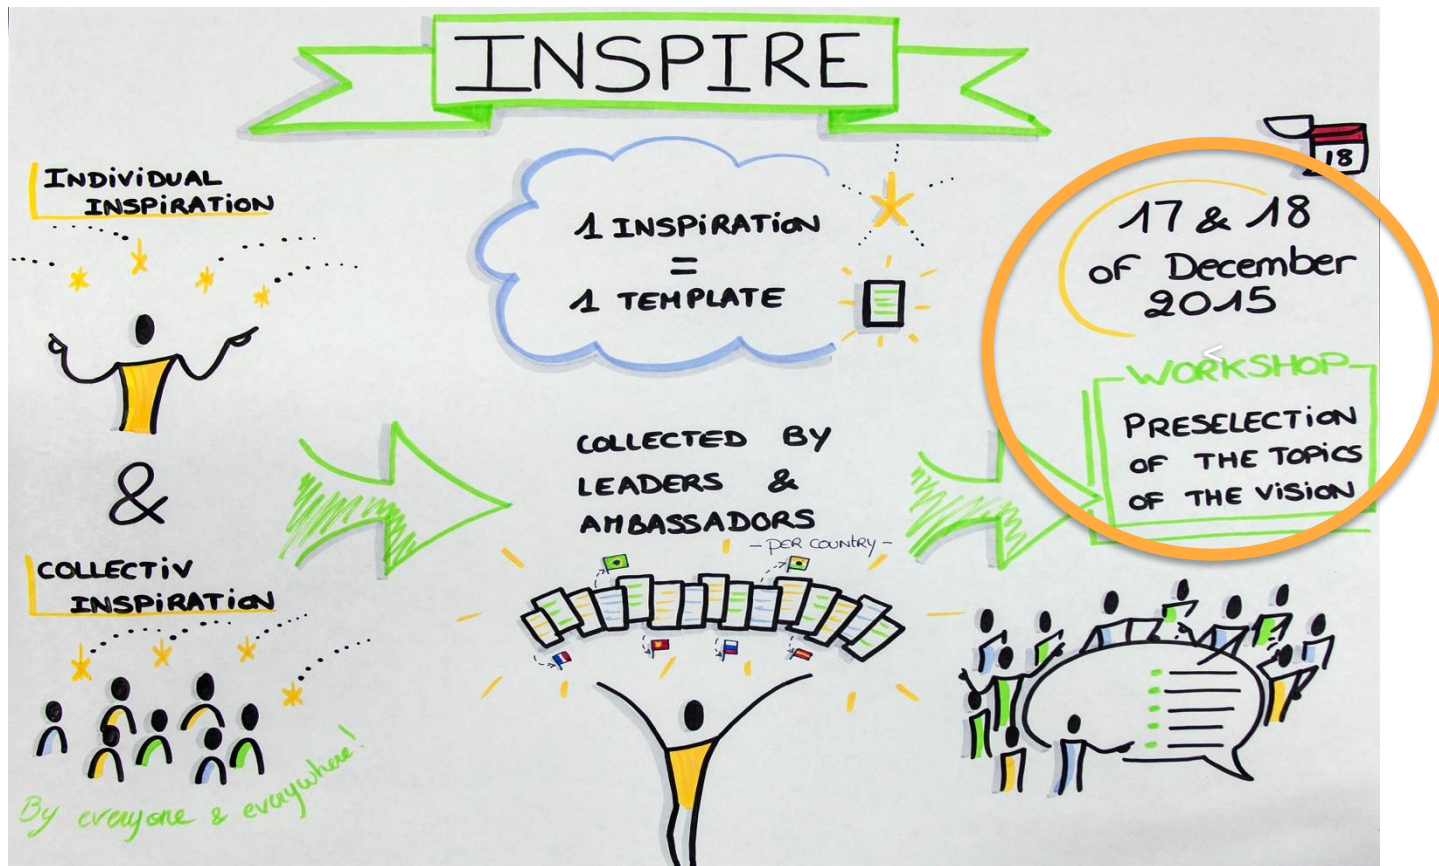 INSPIRE
INDiViDUAL
INSPiRATioN
&
COLLECTiV
INSPiRATioN
By everyone & everywhere!
1 INSPiRATioN
=
1 TEMPLATE
COLLECTED BY
LEADERS &
AMBASSADORS
- PER COUNTRY -
18
17 & 18
OF December
2015
<
WORKSHOP
PRESELECTioN
OF THE TOPiCS
OF THE ViSiON